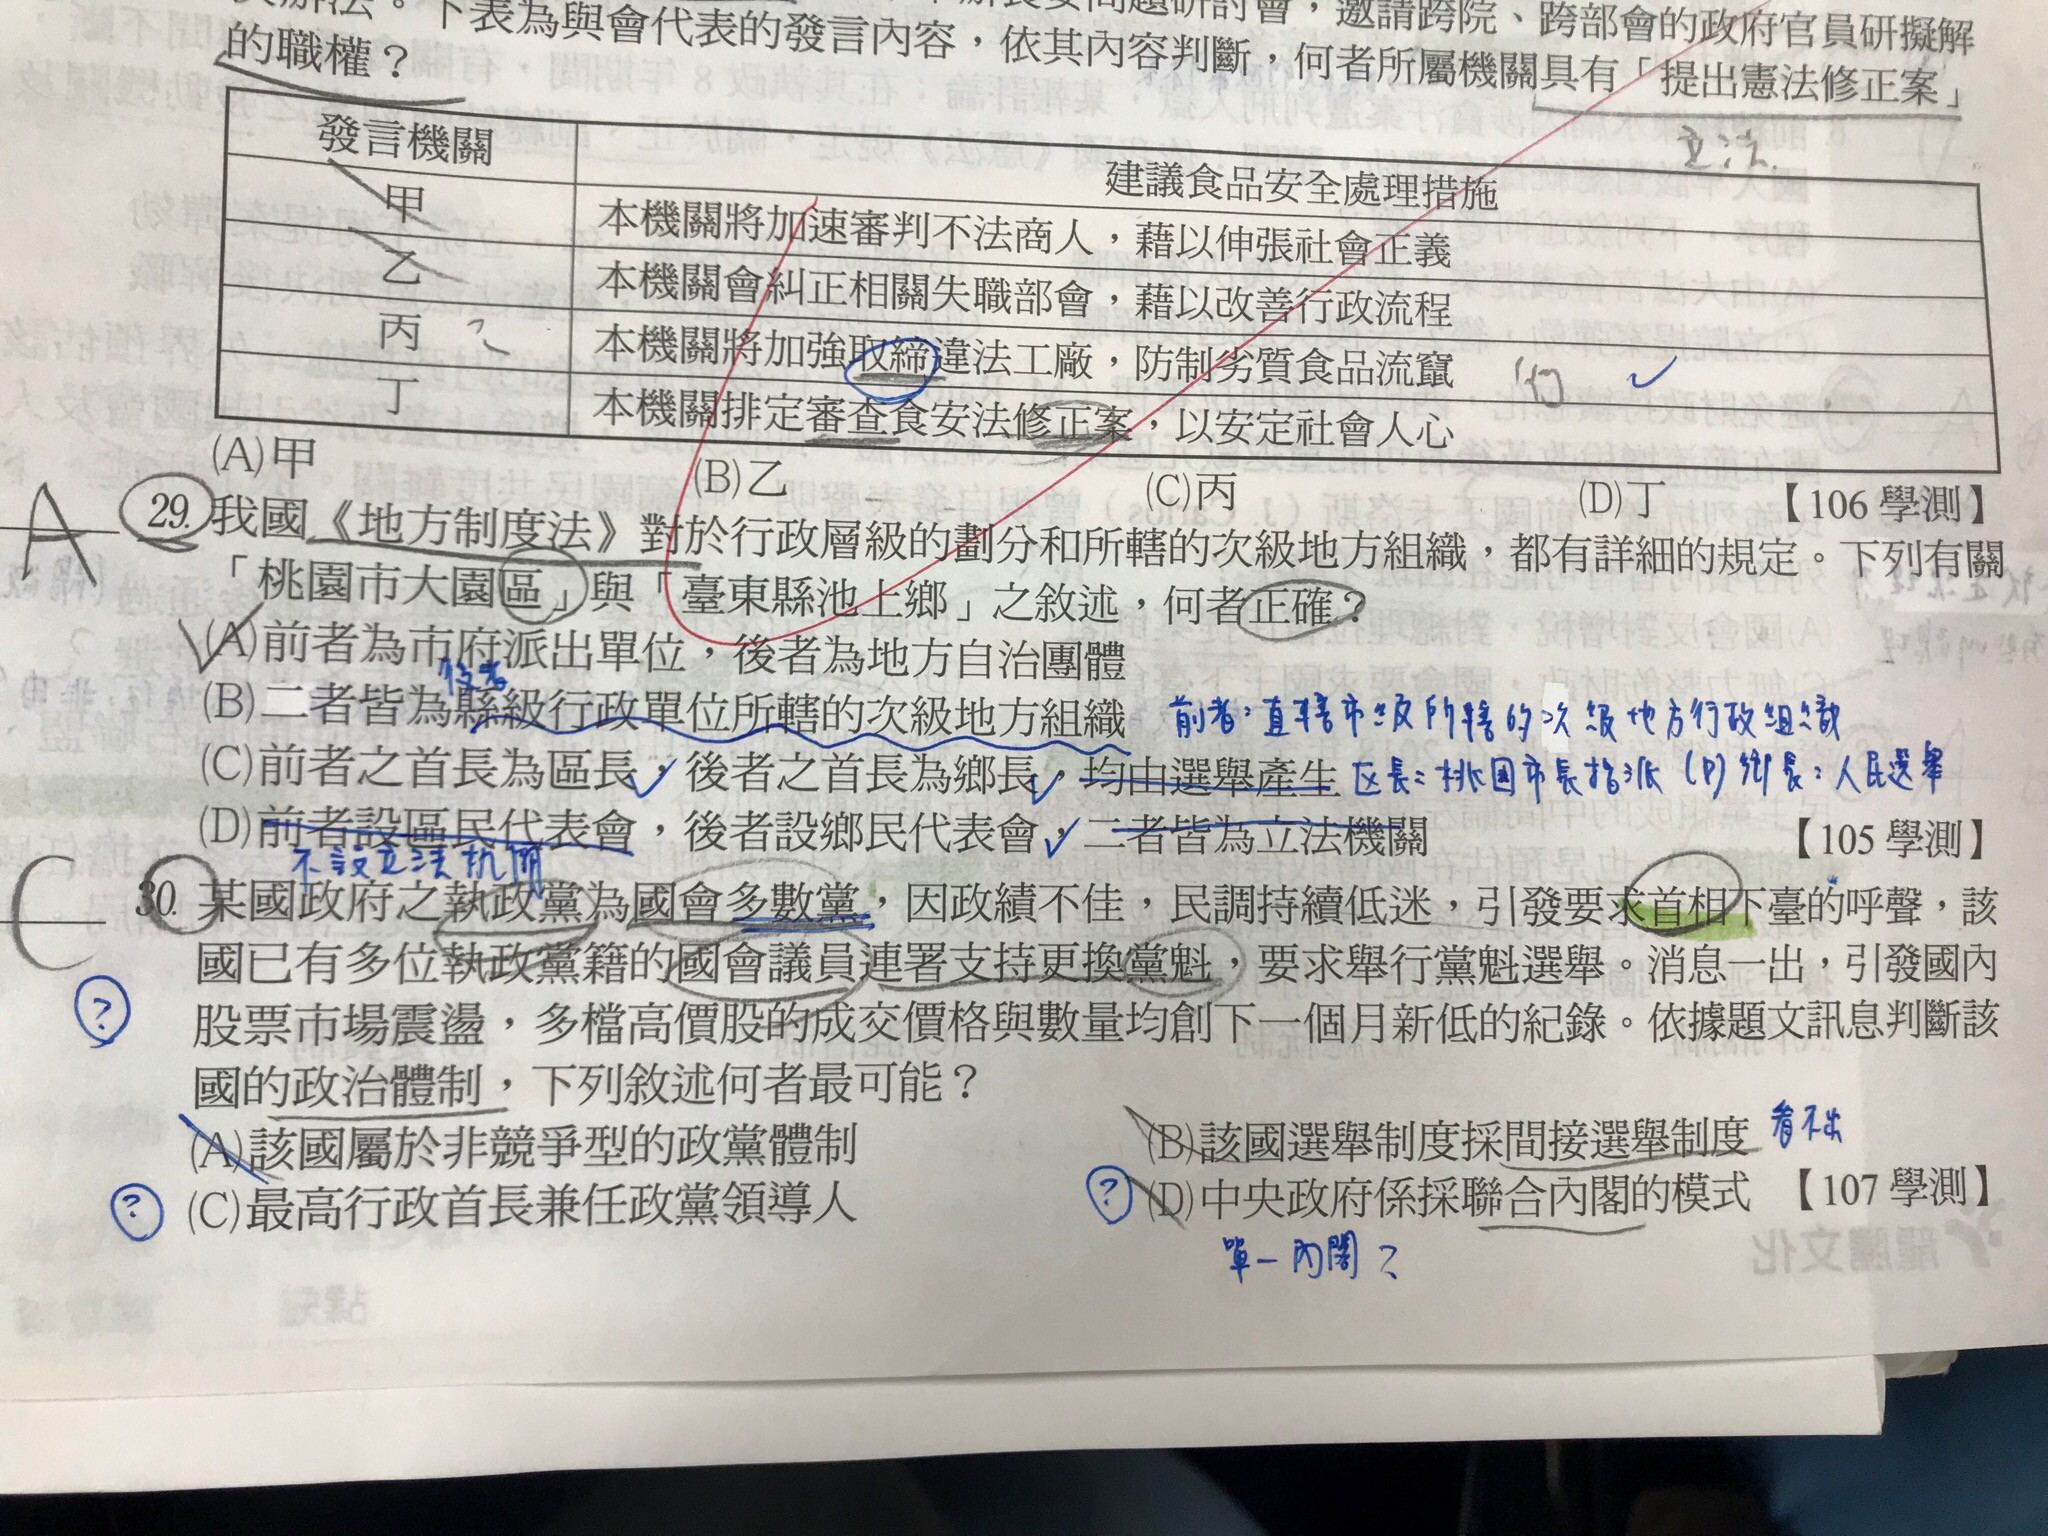 長安問題研討會，邀請跨院、跨部會的政府官員研擬解
辦法。下表為與會代表的發言內容，依其內容判斷，何者所屬機關具有「提出憲法修正案」
的職權？
立法
發言機關 建議食品安全處理措施
甲 本機關將加速審判不法商人，藉以伸張社會正義
乙 本機關會糾正相關失職部會，藉以改善行政流程
丙 本機關將加強取締違法工廠，防制劣質食品流竄
丁 本機關排定審查食安法修正案，以安定社會人心
(A)甲 (B)乙 (C)丙 (D)丁 【106 學測】
A
29. 我國《地方制度法》對於行政層級的劃分和所轄的次級地方組織，都有詳細的規定。下列有關
「桃園市大園區」與「臺東縣池上鄉」之敘述，何者正確？
(A)前者為市府派出單位，後者為地方自治團體
後者
(B)二者皆為縣級行政單位所轄的次級地方組織 前者：直轄市級所轄的次級地方行政組織
(C)前者之首長為區長，後者之首長為鄉長，均由選舉產生 区長：桃园市長指派 鄉長：人民選舉
(D)前者設區民代表會，後者設鄉民代表會，二者皆為立法機關 【105 學測】
不設立法机關
C
30. 某國政府之執政黨為國會多數黨，因政績不佳，民調持續低迷，引發要求首相下臺的呼聲，該
國已有多位執政黨籍的國會議員連署支持更換黨魁，要求舉行黨魁選舉。消息一出，引發國內
?
股票市場震盪，多檔高價股的成交價格與數量均創下一個月新低的紀錄。依據題文訊息判斷該
國的政治體制，下列敘述何者最可能？
(A)該國屬於非競爭型的政黨體制 (B)該國選舉制度採間接選舉制度 看不出
? (C)最高行政首長兼任政黨領導人 ? (D)中央政府係採聯合內閣的模式 【107 學測】
單一內閣？
龍騰文化